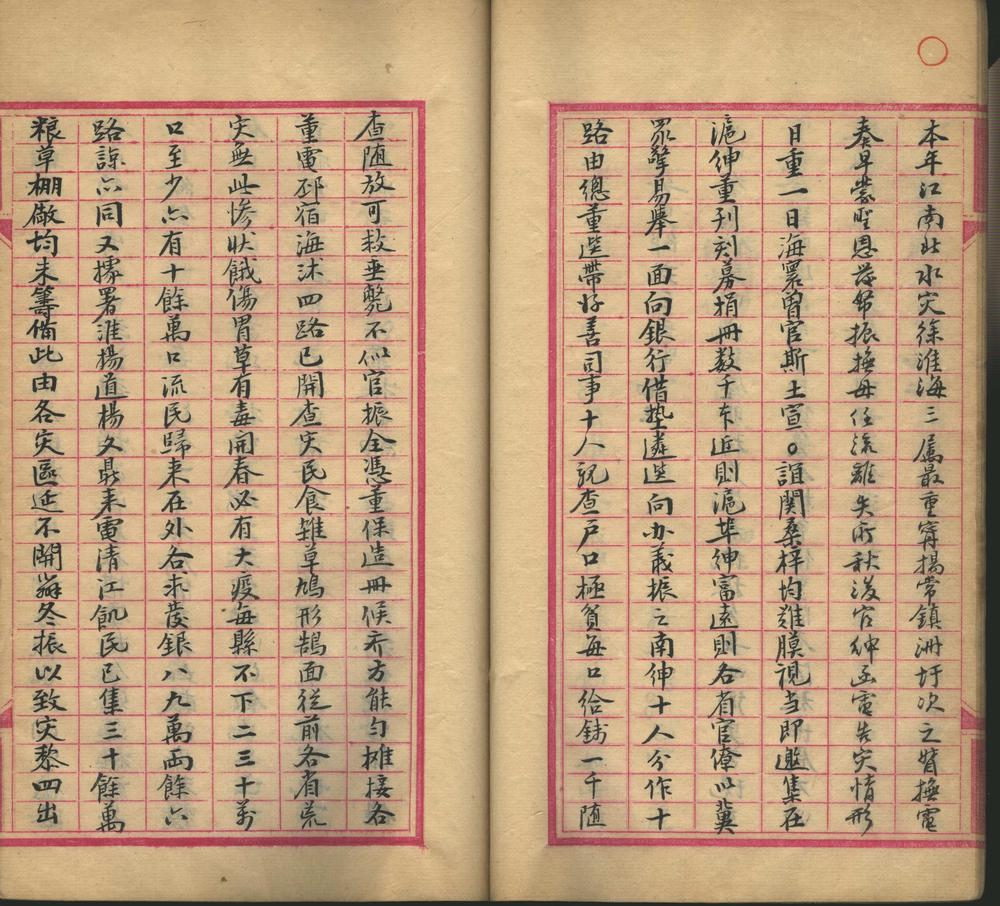 本年江南北水灾徐淮海三属最重寗揚常鎮洲圩次之督撫電
奏早蒙聖恩發帑振撫毋任流離失所秋後官紳函電告灾情形
日重一日海寰曾官斯土宣○誼関桑梓均難膜視当即邀集在
滬紳董刊刻募捐冊数千本近則滬埠紳富遠則各省官僚以冀
眾擎易舉一面向銀行借墊遴选向办義振之南紳十人分作十
路由總董选帶好善司事十人親查户口極貧每口给錢一千随
查随放可救垂斃不似官振全憑董保造冊候齐方能匀摊接各
董電邳宿海沭四路已開查灾民食雜草鳩形鵠面從前各省荒
灾無此惨状餓傷胃草有毒開春必有大疫每縣不下二三十萬
口至少亦有十餘萬口流民歸来在外各求發銀八九萬両餘六
路諒亦同又據署淮楊道楊文鼎来電清江飢民已集三十餘萬
粮草棚廠均未籌備此由各灾區延不開辦冬振以致灾黎四出